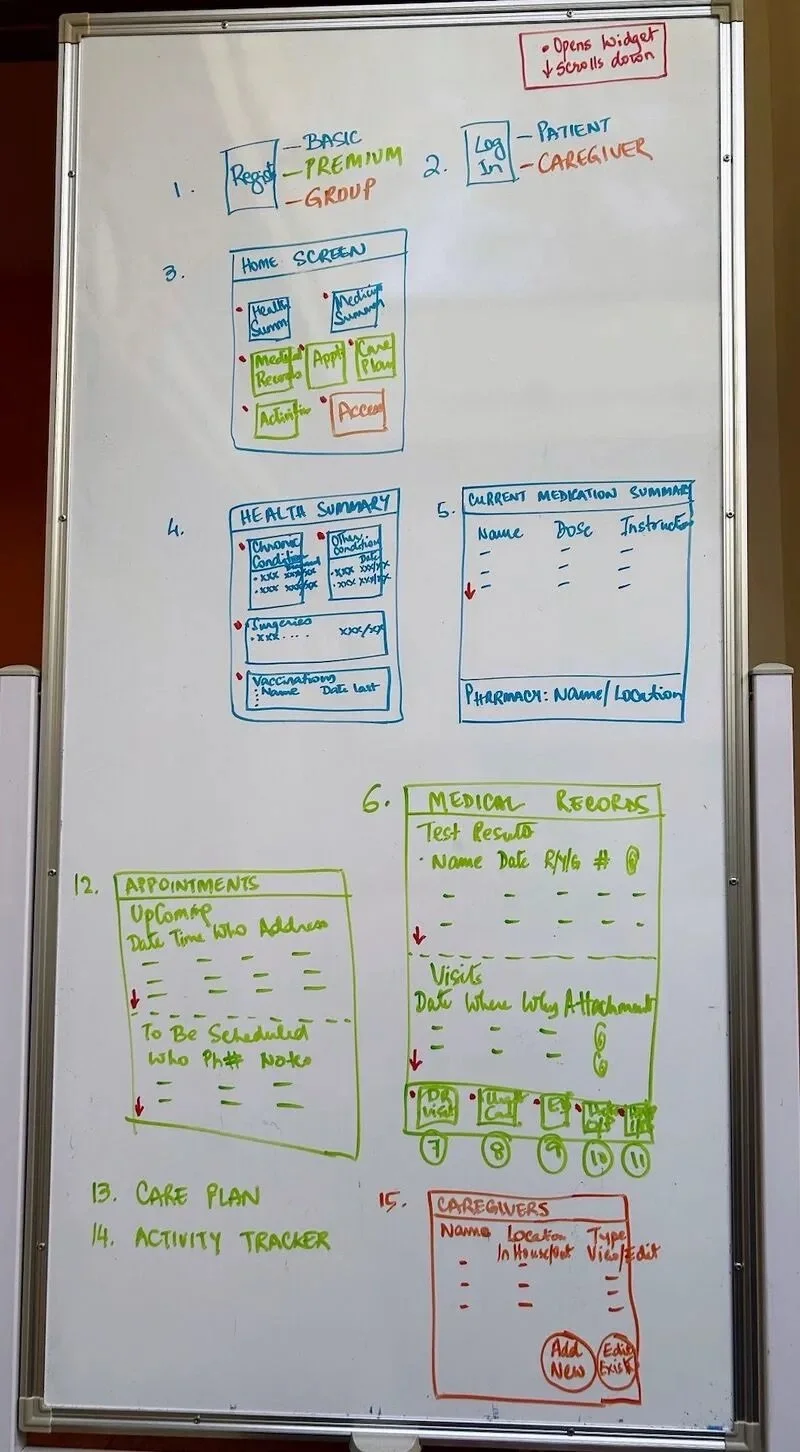 • Opens Widget
↓ Scrolls down
1. Regist
– BASIC
– PREMIUM
– GROUP
2. Log
In
– PATIENT
– CAREGIVER
3. HOME SCREEN
Health
Summ
Medical
Records
Appt
Care
Plan
Activities
Access
4. HEALTH SUMMARY
Chronic
Condition
• xxx xxx/xx
• xxx xxx/xx
Other
Condition
Date
• xxx xxx/xx
• xxx xxx/xx
Surgeries
• xxx .... xxx/xx
Vaccinations
Name Date last
5. CURRENT MEDICATION SUMMARY
Name Dose Instruct
PHARMACY: NAME/LOCATION
6. MEDICAL RECORDS
Test Results
• Name Date R/Y/G #
Visits
Date Where Why Attachment
DR
Visit
7 8 9 10 11
12. APPOINTMENTS
UpComing
Date Time Who Address
To Be Scheduled
Who Ph# Notes
13. CARE PLAN
14. ACTIVITY TRACKER
15. CAREGIVERS
Name Location Type
In House/out View/Edit
Add
New
Edit
Exist